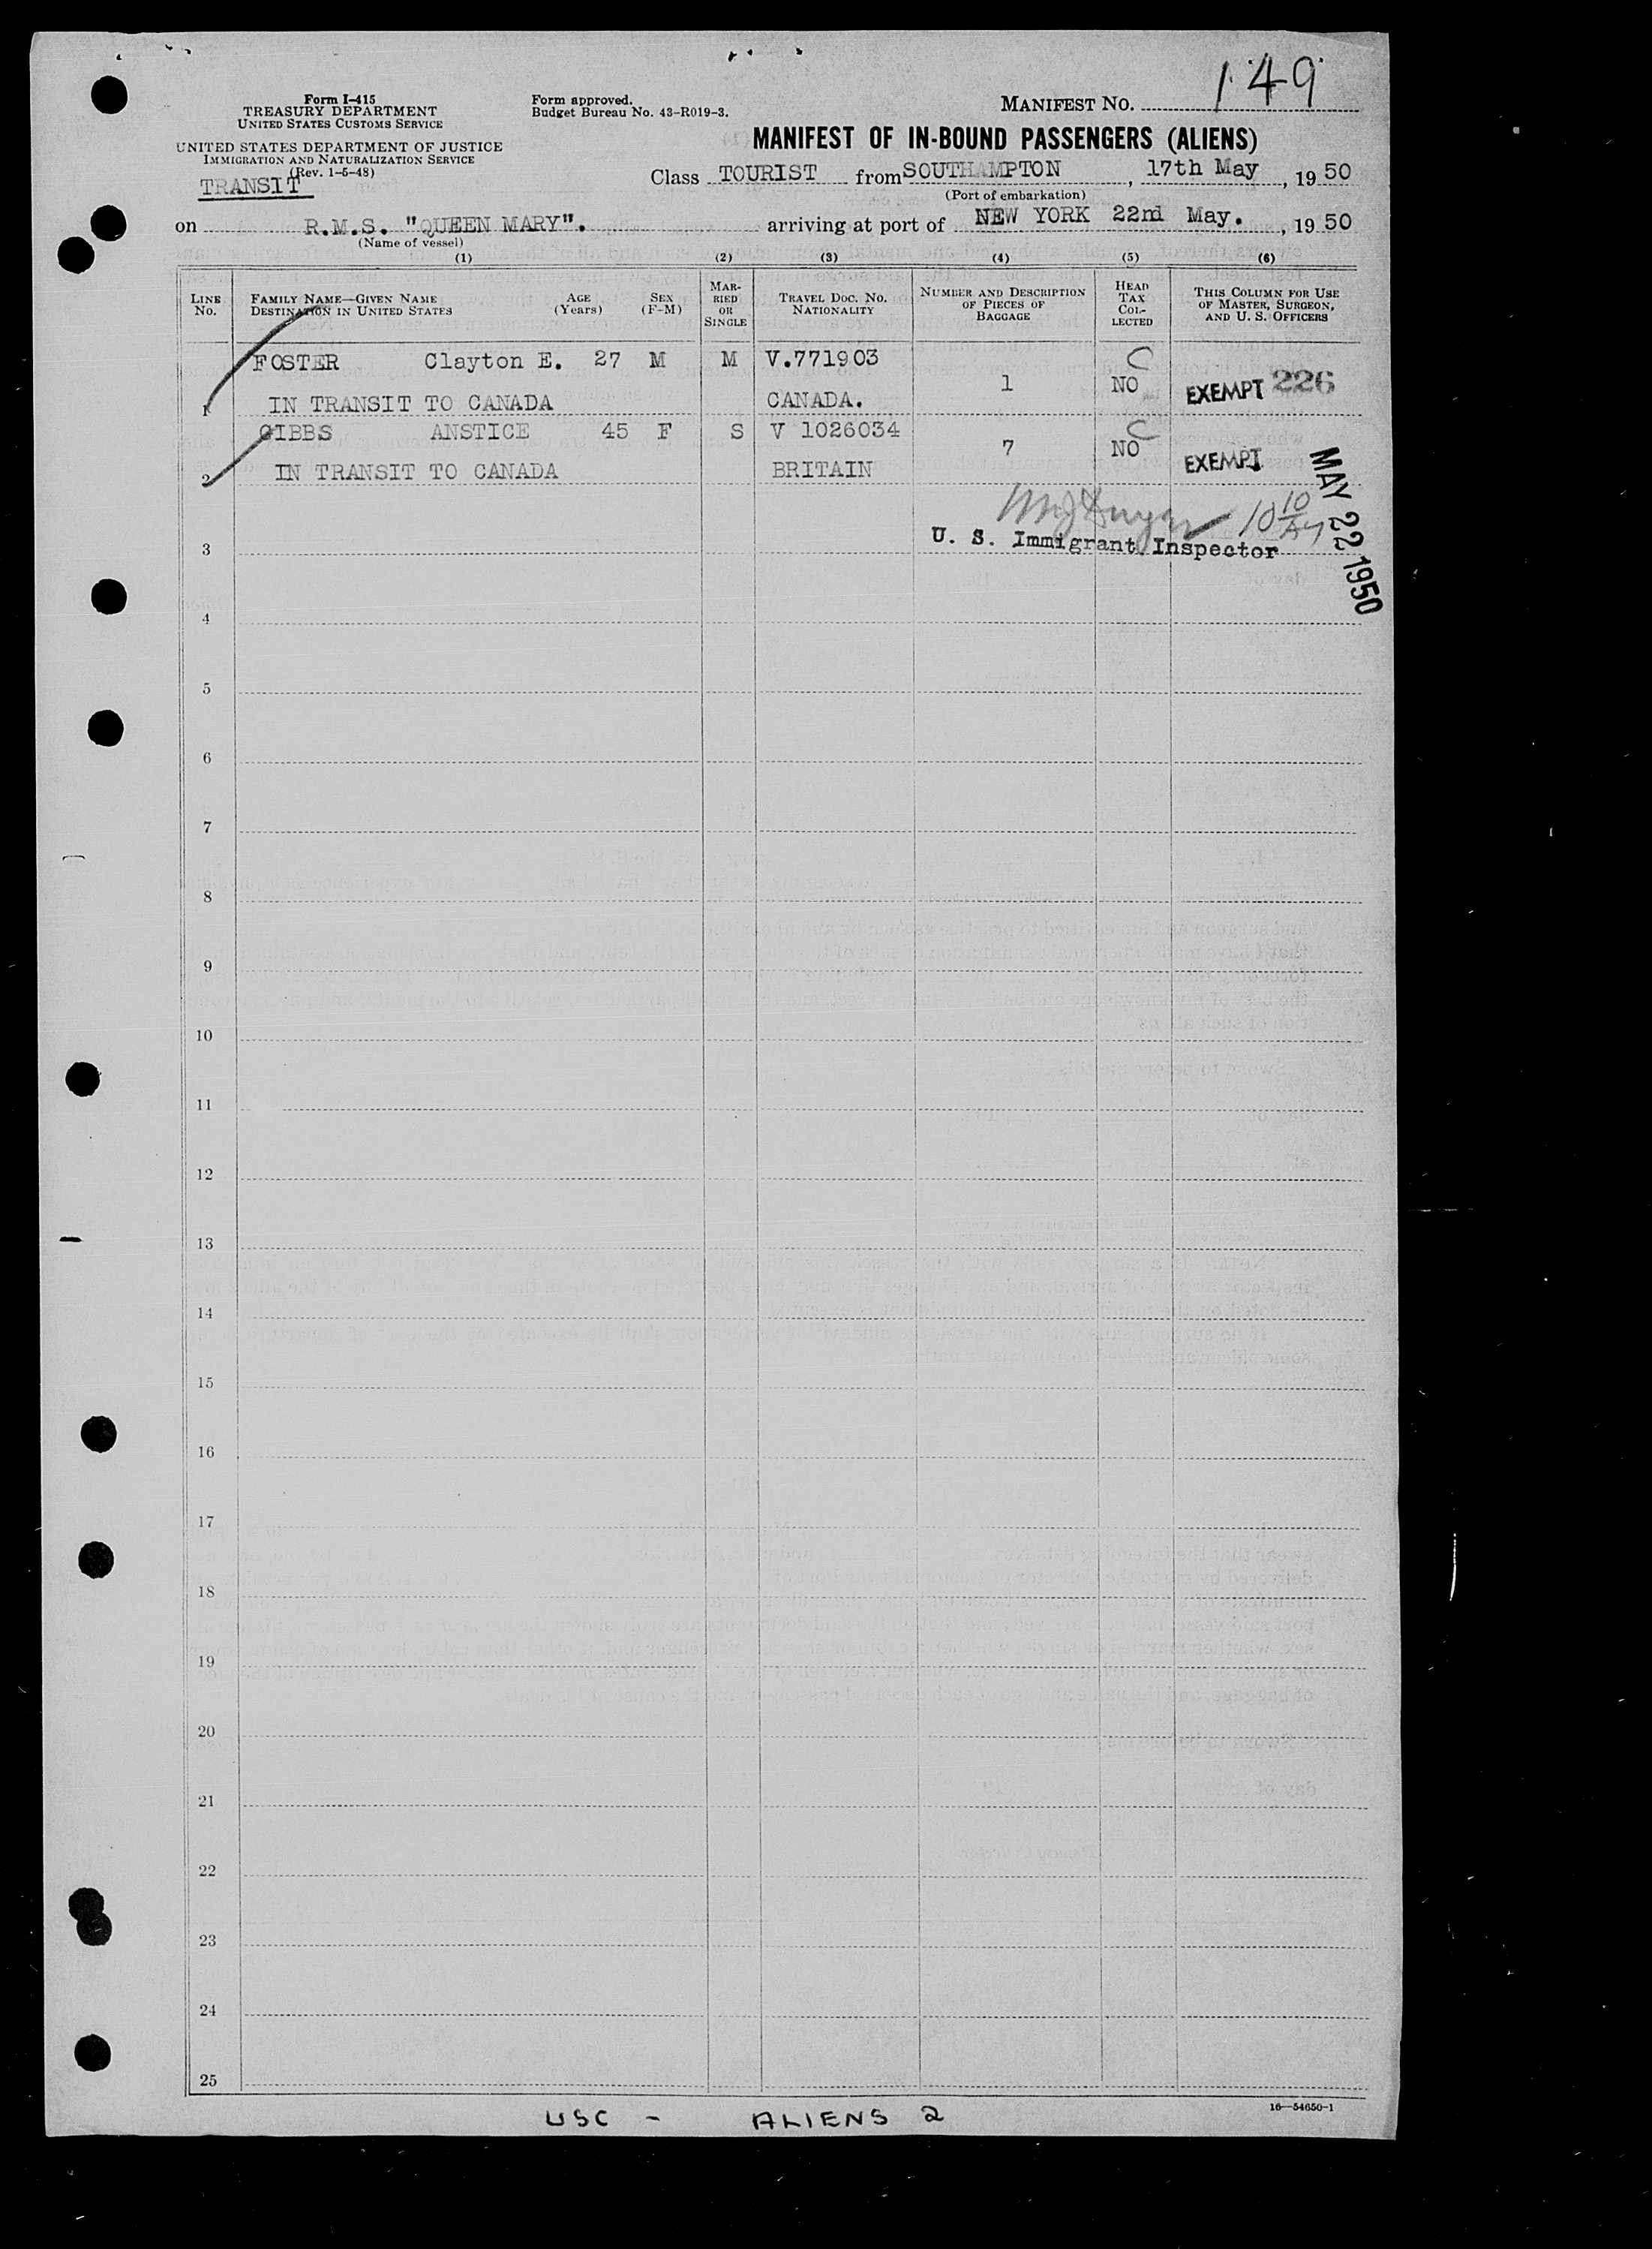 149
Form I-415
TREASURY DEPARTMENT
UNITED STATES CUSTOMS SERVICE
UNITED STATES DEPARTMENT OF JUSTICE
IMMIGRATION AND NATURALIZATION SERVICE
(Rev. 1-5-48)
TRANSIT
Form approved.
Budget Bureau No. 43-R019-3.
MANIFEST NO.
MANIFEST OF IN-BOUND PASSENGERS (ALIENS)
Class TOURIST from SOUTHAMPTON, 17th May, 1950
(Port of embarkation)
on R.M.S. "QUEEN MARY". arriving at port of NEW YORK 22nd May., 1950
(Name of vessel)
(1) (2) (3) (4) (5) (6)
LINE No.
FAMILY NAME—GIVEN NAME
DESTINATION IN UNITED STATES
AGE (Years)
SEX (F-M)
MARRIED OR SINGLE
TRAVEL DOC. NO. NATIONALITY
NUMBER AND DESCRIPTION OF PIECES OF BAGGAGE
HEAD TAX COLLECTED
THIS COLUMN FOR USE OF MASTER, SURGEON, AND U. S. OFFICERS
FOSTER Clayton E. 27 M M V.771903 C
1 IN TRANSIT TO CANADA CANADA. 1 NO EXEMPT 226
GIBBS ANSTICE 45 F S V 1026034 C
2 IN TRANSIT TO CANADA BRITAIN 7 NO EXEMPT
MAY 22 1950
10 10
3 U. S. Immigrant Inspector
4
5
6
7
8
9
10
11
12
13
14
15
16
17
18
19
20
21
22
23
24
25
16—54650-1
USC - ALIENS 2